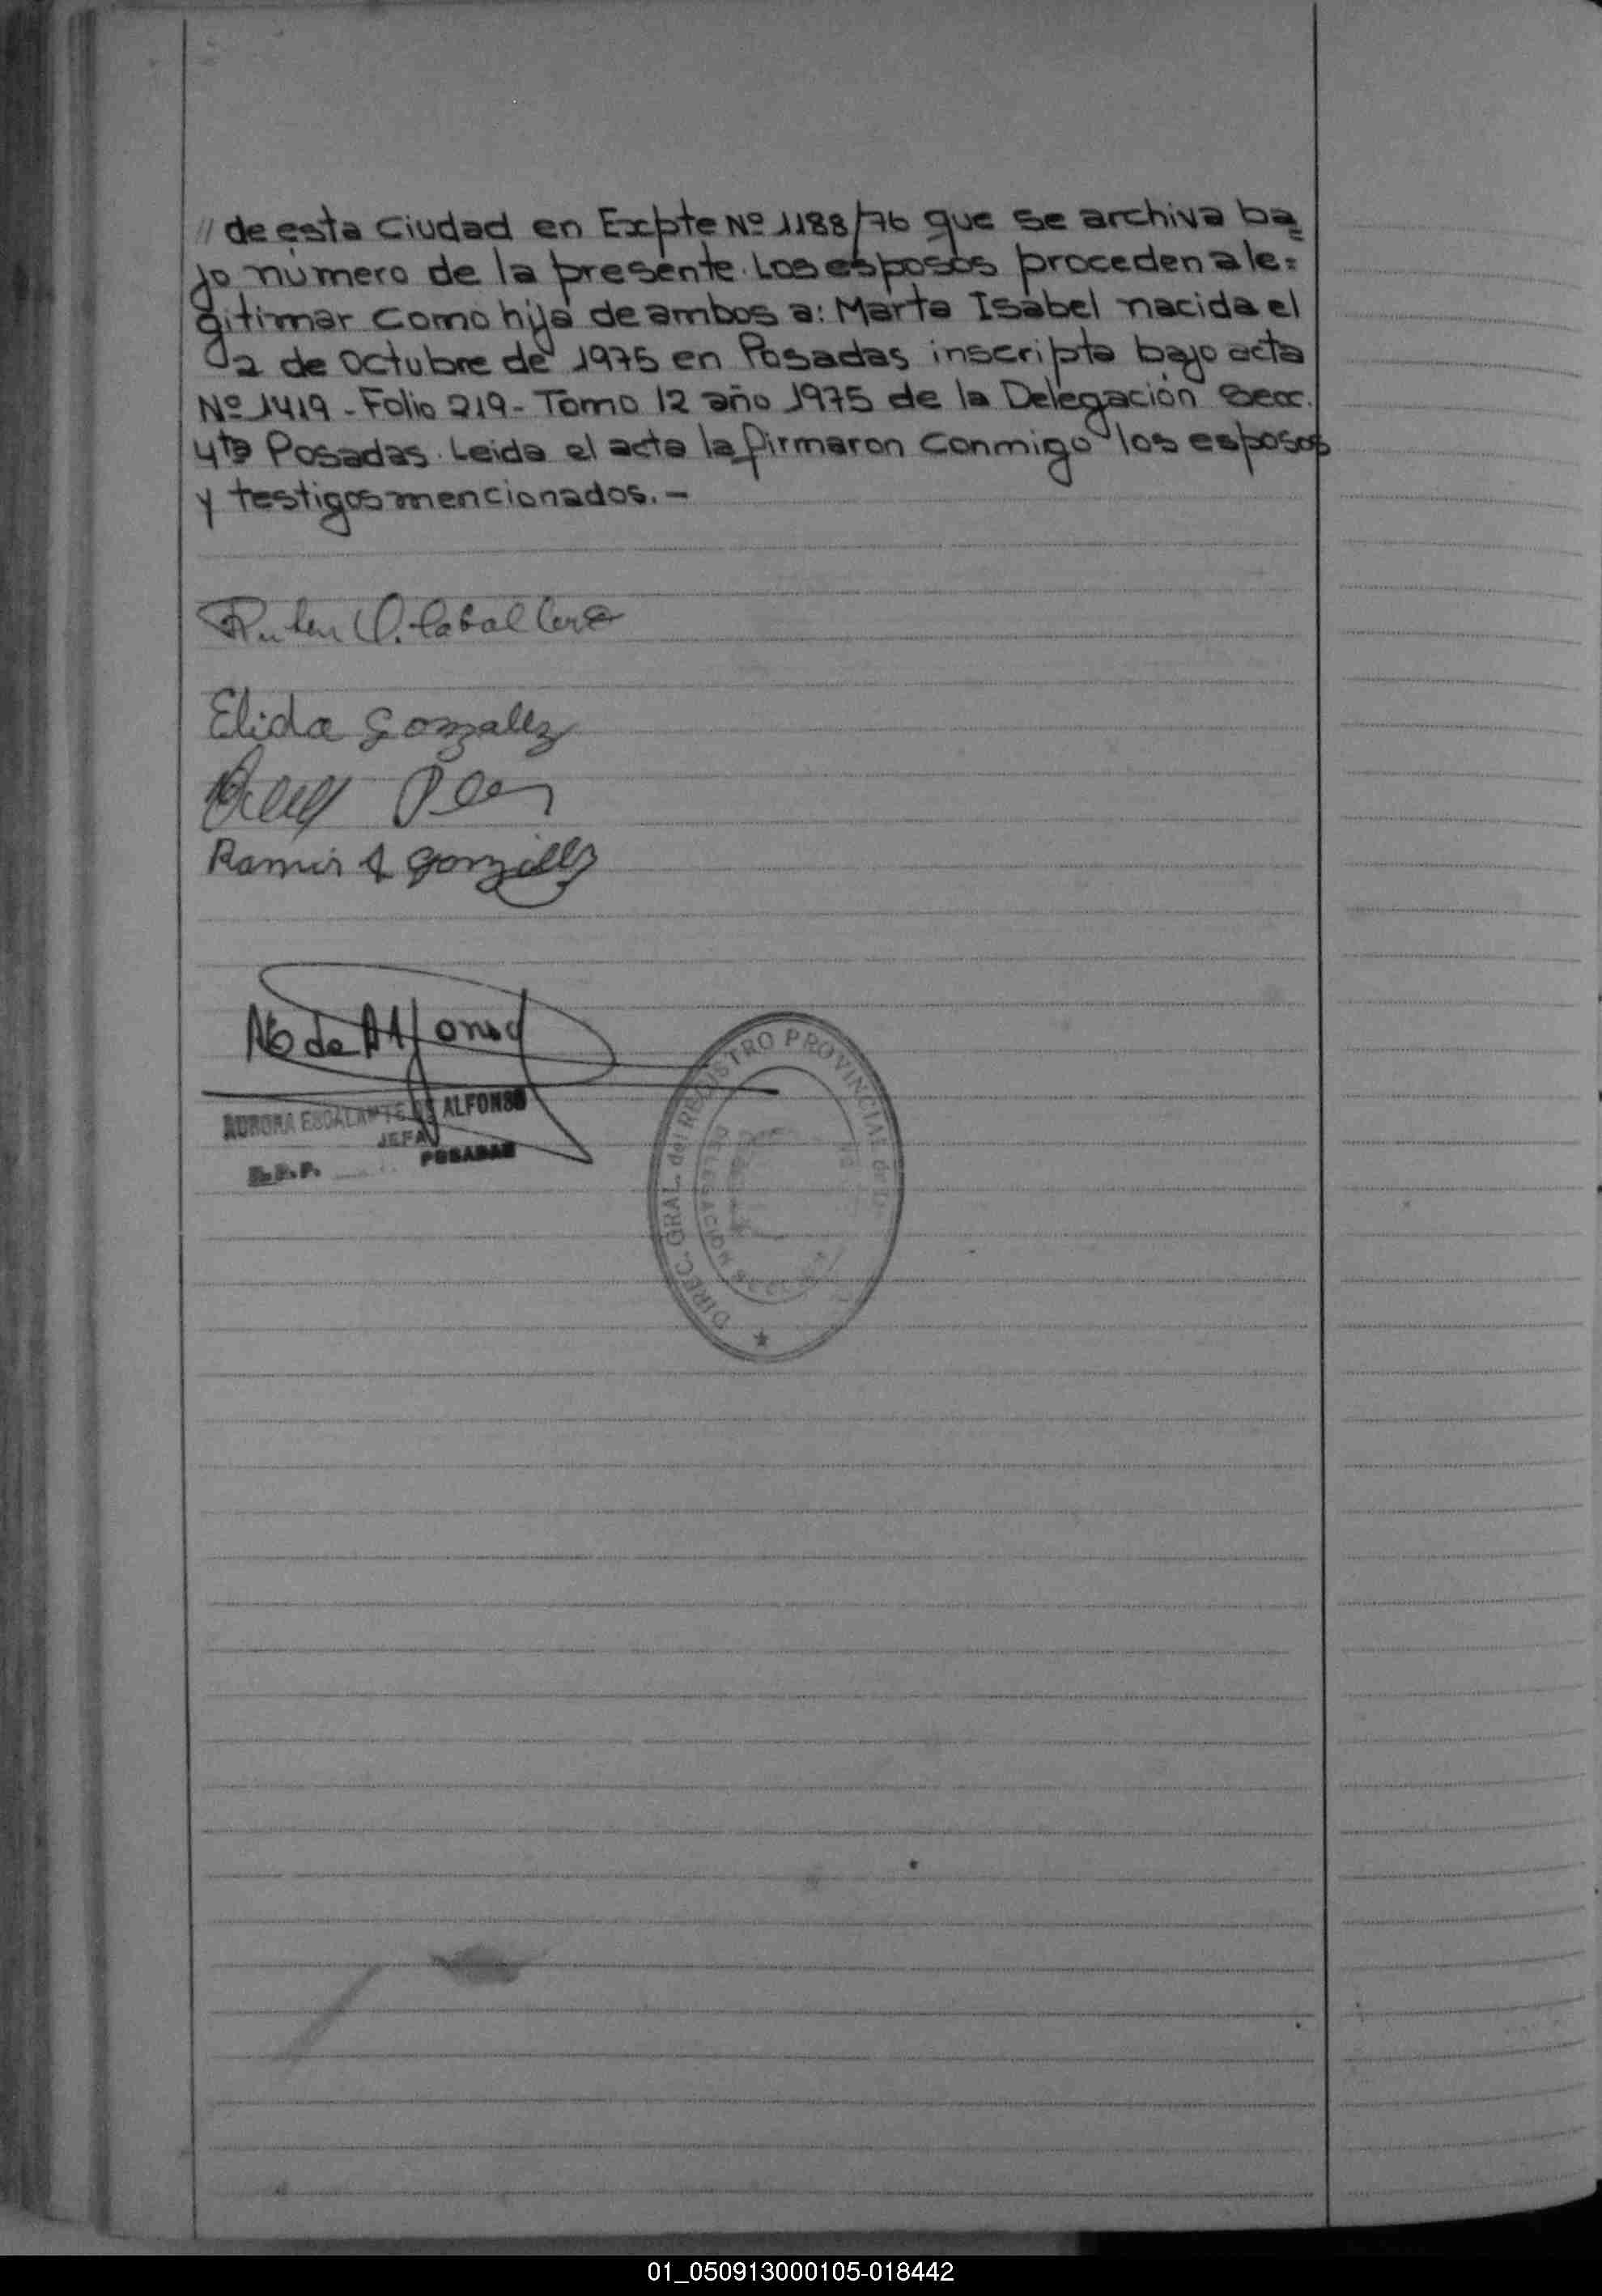 // de esta Ciudad en Expte Nº 1188/76 que se archiva ba=
jo número de la presente. Los esposos proceden a le=
gitimar como hija de ambos a: Marta Isabel nacida el
2 de Octubre de 1975 en Posadas inscripta bajo acta
Nº 1419 - Folio 219 - Tomo 12 año 1975 de la Delegación Secc.
4ta Posadas. Leida el acta la firmaron conmigo los esposos
y testigos mencionados. -
Ruben O. Caballero
Elida Gonzalez
Ramir A Gonzalez
No de Alfonso
AURORA ESCALANTE DE ALFONSO
JEFA
R.P.P. POSADAS
DIREC. GRAL. del REGISTRO PROVINCIAL de las
DELEGACION
01_050913000105-018442